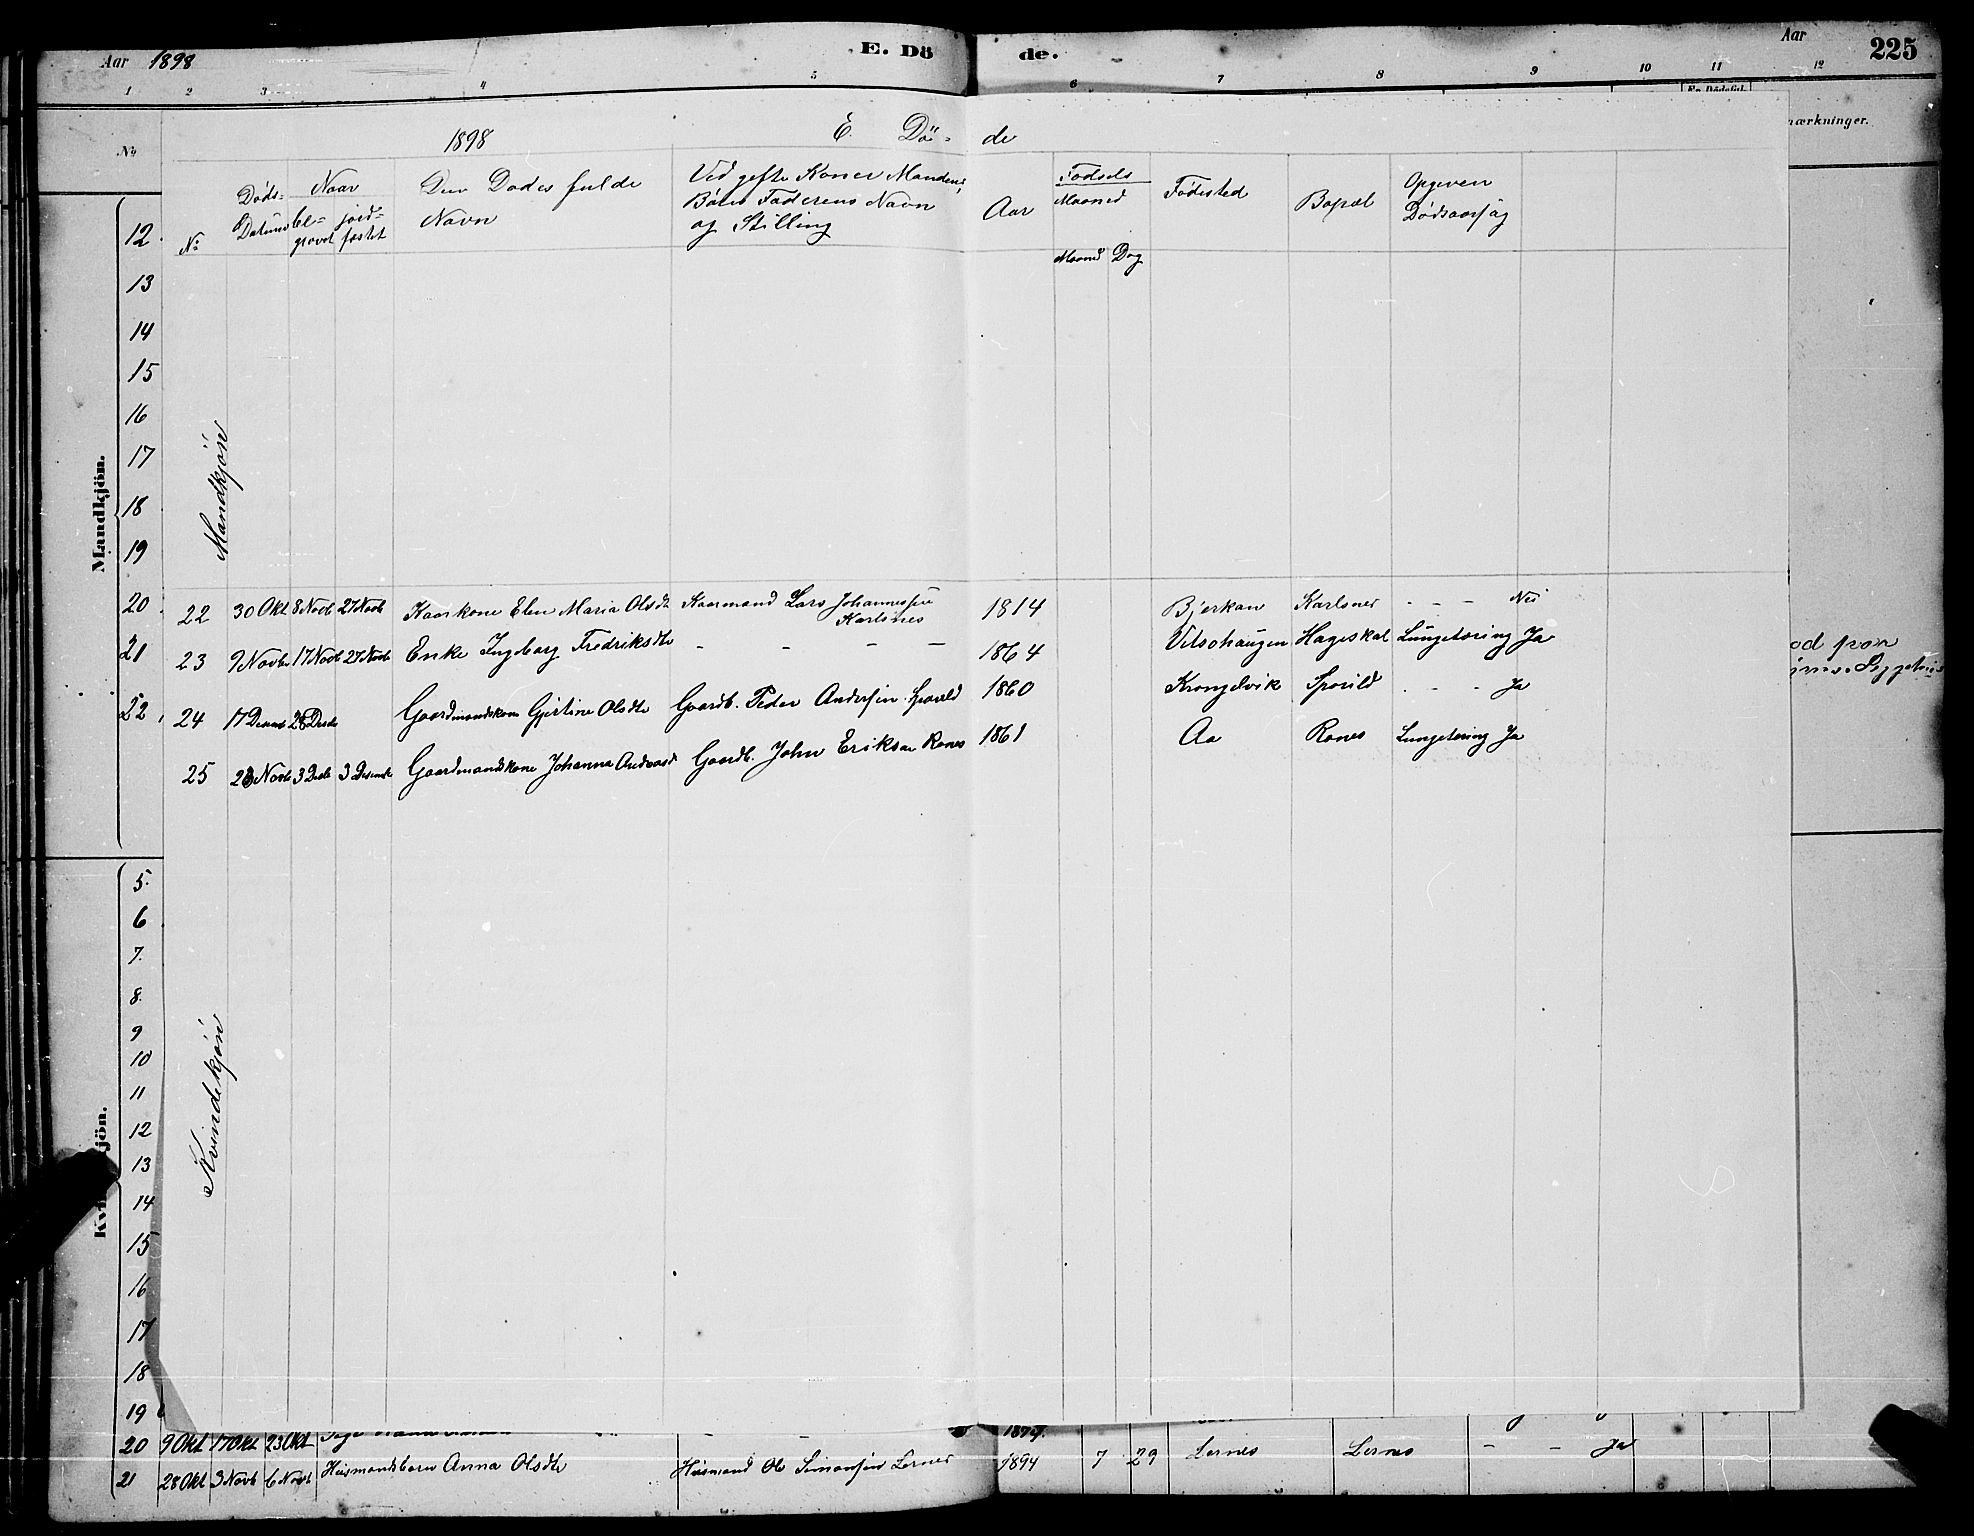 Aar 1898 E. Dö de. Aar 225
1 2 3 4 5 6 7 8 9 10 11 12
1898 E. Dö- de
No
mærkninger.
No Døds- Datum Naar be- gravet jord- fæstet
Den Dødes fulde Navn
Ved gifte Koner Mandens,
Børn Faderens Navn
og Stilling
Aar
Fødsels
Maaned
Maaned Dag
Fødested
Bopæl
Opgiven
Dødsaarsag
Mandkjön.
Mandkjön
12.
13
14
15
16
17
18
19
20.
21
22.
22 30 Okt 8 Novb 27 Novb Kaarkone Elen Maria Olsdt Kaarmand Lars Johannessen Karlsnes 1814 Bjerkan Karlsnes - - - Nei
23 9 Novb 17 Novb 27 Novb Enke Ingeborg Fredriksdtr - - - - 1864 Vitsohaugen Hageskal Lungetæring Ja
24 17 Decemb 28 Decb Gaardmandskone Gjertine Olsdtr Gaardb. Peder Andersen Sporild 1860 Krongelvik Sporild - - - Ja
25 23 Novb 3 Decb 3 Decemb Gaardmandskone Johanna Andreasd Gaardb. John Eriksen Rones 1861 Aa Rones Lungetæring Ja
Kvindekjön
5.
6
7.
8.
9
10
11
12
13
14
15
16
17
18
19
20 9 Okt 17 Okt 23 Okt
21 28 Okt 3 Novb 6 Novb Husmandsbarn Anna Olsdtr Husmand Ole Simonsen Lernes 1894 7 29 Lernes Lernes - - Ja